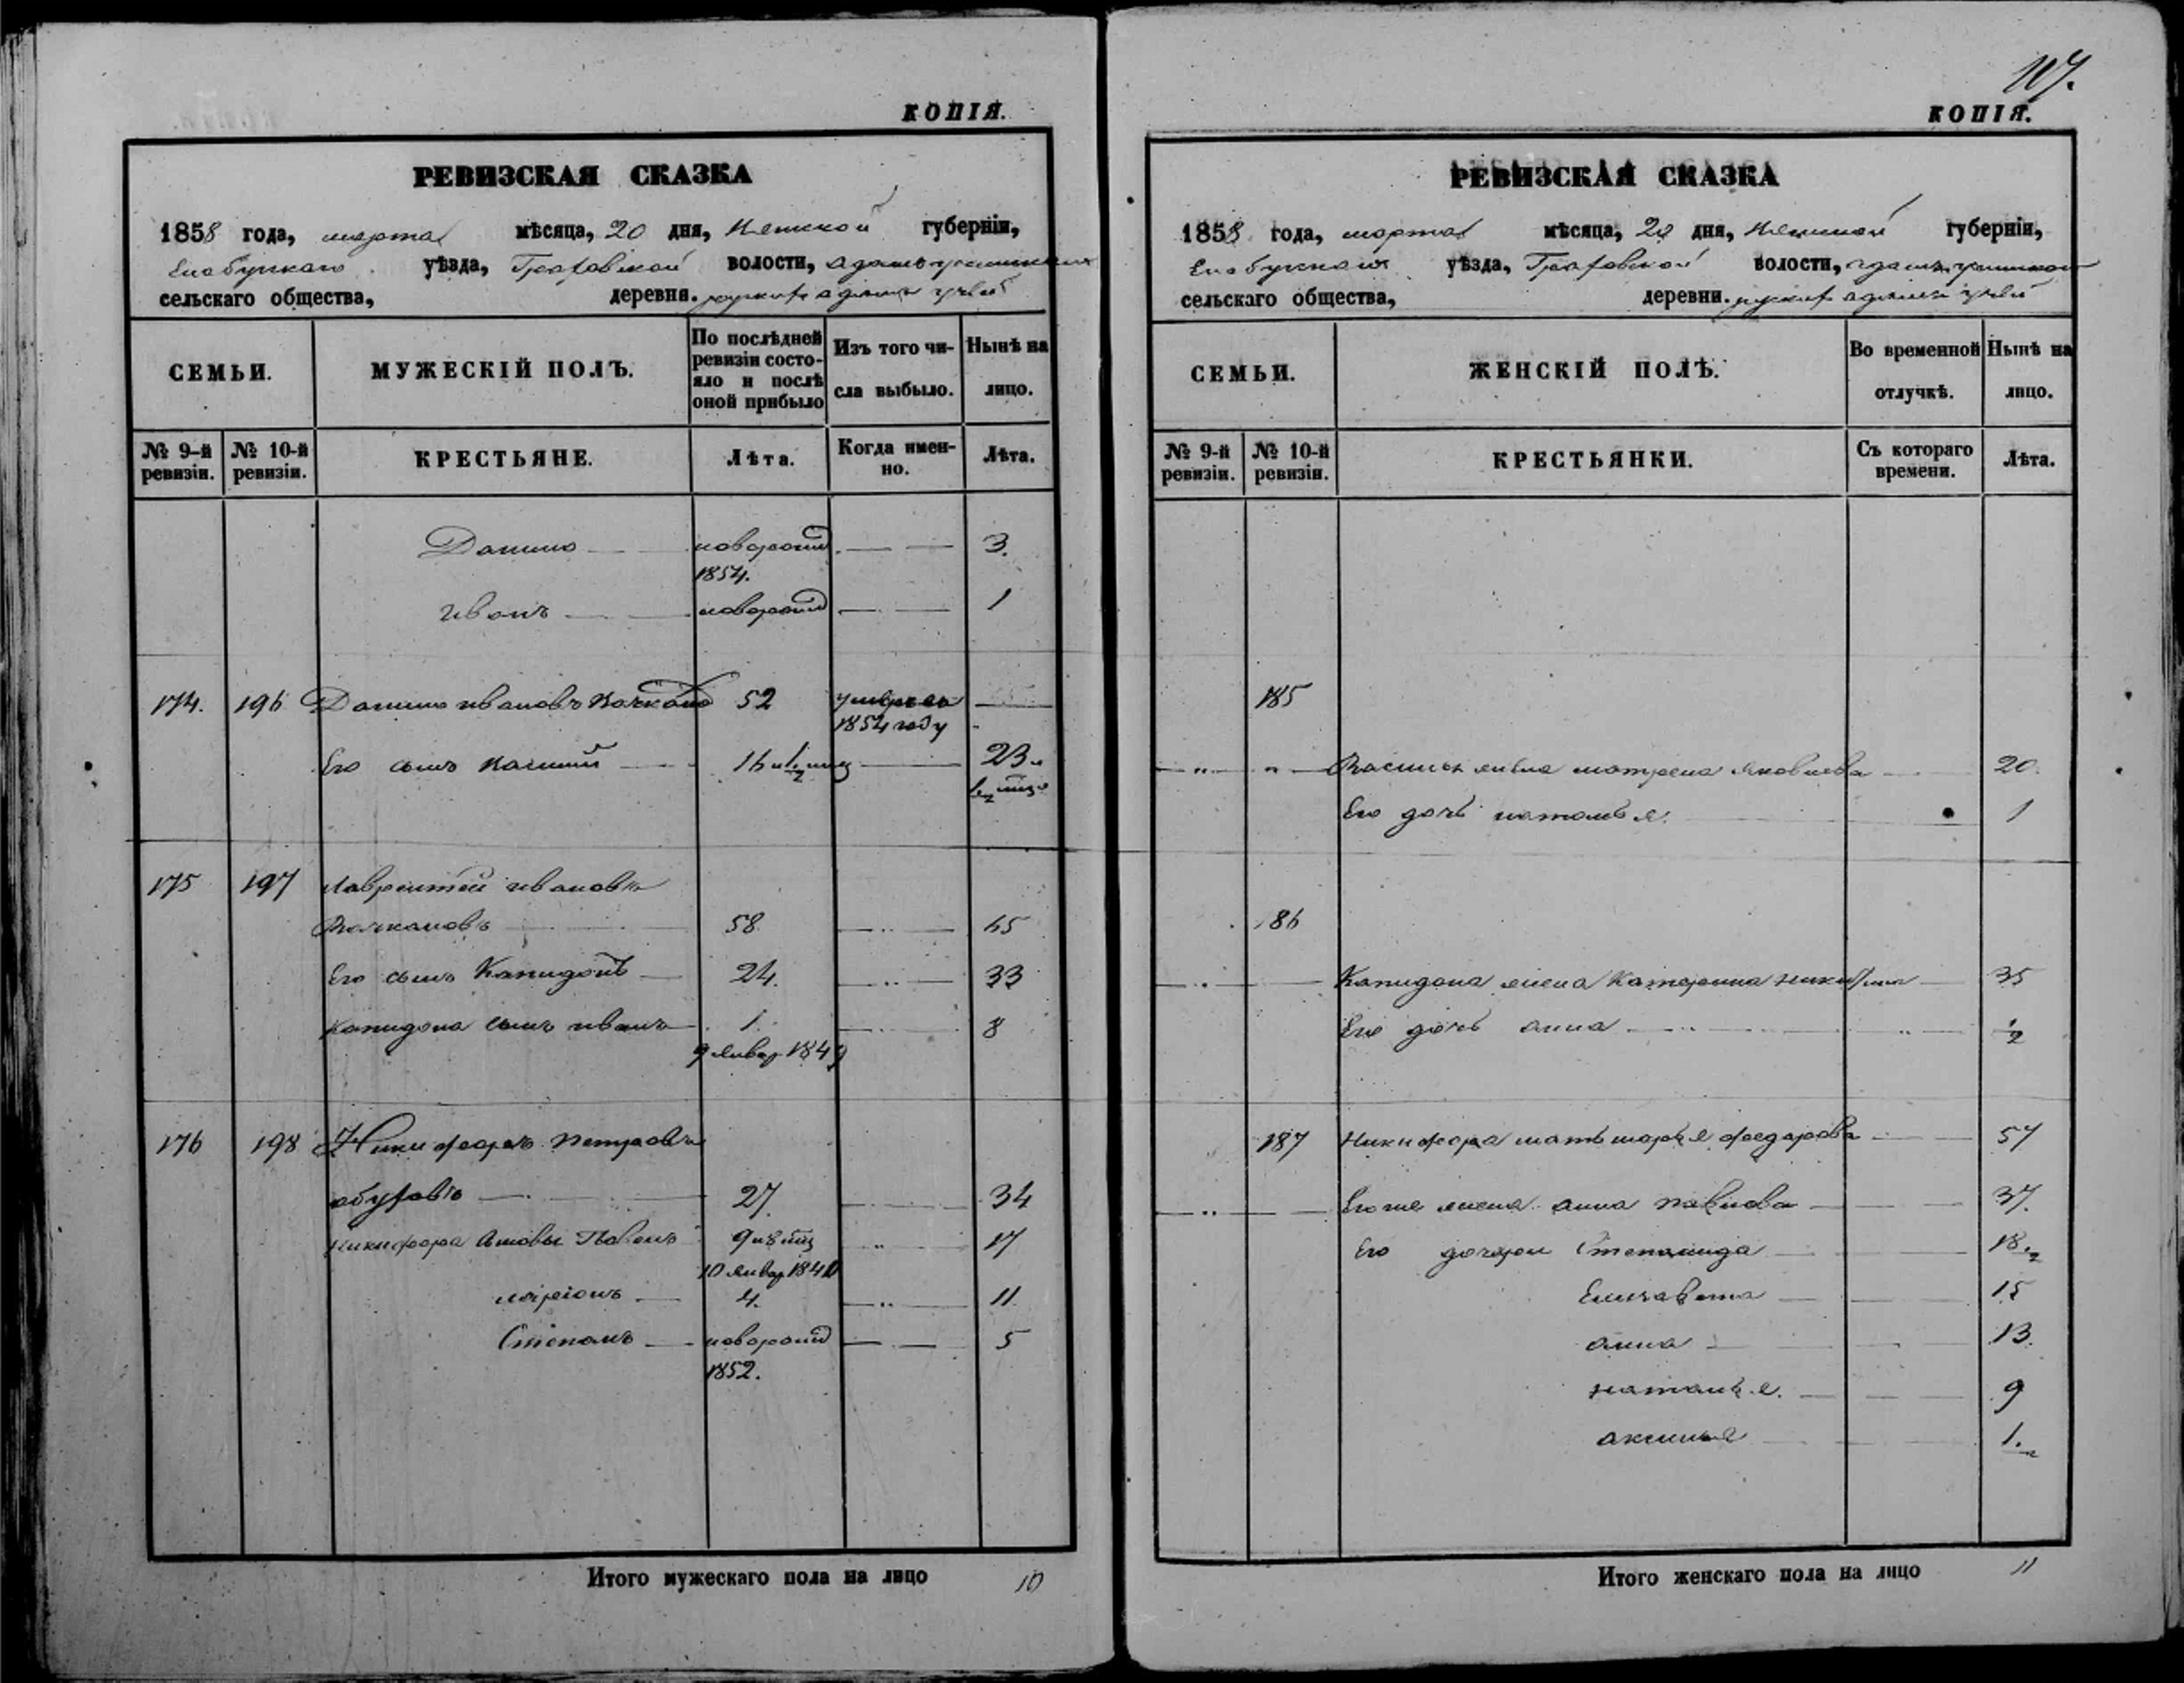 КОПІЯ.
РЕВИЗСКАЯ СКАЗКА
1858 года, марта мѣсяца, 20 дня, Вятской губерніи,
Елабугскаго уѣзда, Граховской волости,
сельскаго общества, деревни.
СЕМЬИ. МУЖЕСКІЙ ПОЛЪ. По послѣдней ревизіи состояло и послѣ оной прибыло Изъ того числа выбыло. Нынѣ на лицо.
№ 9-й ревизіи. № 10-й ревизіи. КРЕСТЬЯНЕ. Лѣта. Когда именно. Лѣта.
Данило новорожд 3.
1854.
Иванъ новорожд 1
174. 196 Данило Ивановъ 52 умеръ въ
1854 году
Его сынъ Василий 16 23
175 197 Лаврентей Ивановъ
58 65
Его сынъ Капидонъ 24. 33
Капидона сынъ Иванъ 1. 8
9 январ 1849
176 198 Никифоръ Петровъ
27 34
Никифора сыновья Павелъ 9 17
10 январ
Ларіонъ 4. 11
Степанъ новорожд 5
1852.
Итого мужескаго пола на лицо 10
107.
КОПІЯ.
РЕВИЗСКАЯ СКАЗКА
1858 года, марта мѣсяца, 20 дня, Вятской губерніи,
Елабугскаго уѣзда, Граховской волости,
сельскаго общества, деревни.
СЕМЬИ. ЖЕНСКІЙ ПОЛЪ. Во временной отлучкѣ. Нынѣ на лицо.
№ 9-й ревизіи. № 10-й ревизіи. КРЕСТЬЯНКИ. Съ котораго времени. Лѣта.
185
Василья жена Матрена Яковлева 20.
Его дочь Наталья. 1
186
Капидона жена Катерина 35
Его дочь Анна 1/2
187 Никифора мать Марья Федорова 57
Его же жена Анна Павлова 37.
Его дочери Степанида 18.
Елизавета 15
Анна 13.
Наталья. 9
Аксинья 1.
Итого женскаго пола на лицо 11